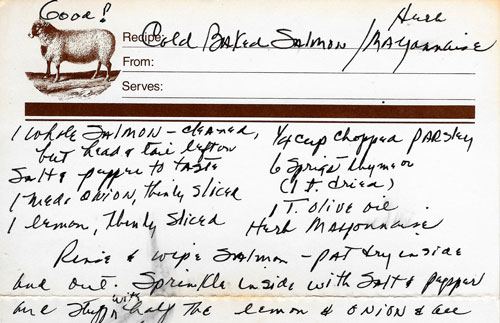 Good!
Recipe: Cold Baked Salmon / Herb Mayonnaise
From:
Serves:
1 whole Salmon - cleaned,
but head & tail left on
Salt & pepper to taste
1 med. onion, thinly sliced
1 lemon, thinly sliced
1/4 cup chopped parsley
6 sprigs thyme or
(1 t. dried)
1 T. olive oil
Herb Mayonnaise
Rinse & wipe Salmon - pat dry inside
and out. Sprinkle inside with Salt & pepper
and stuff with half the lemon & onion & all